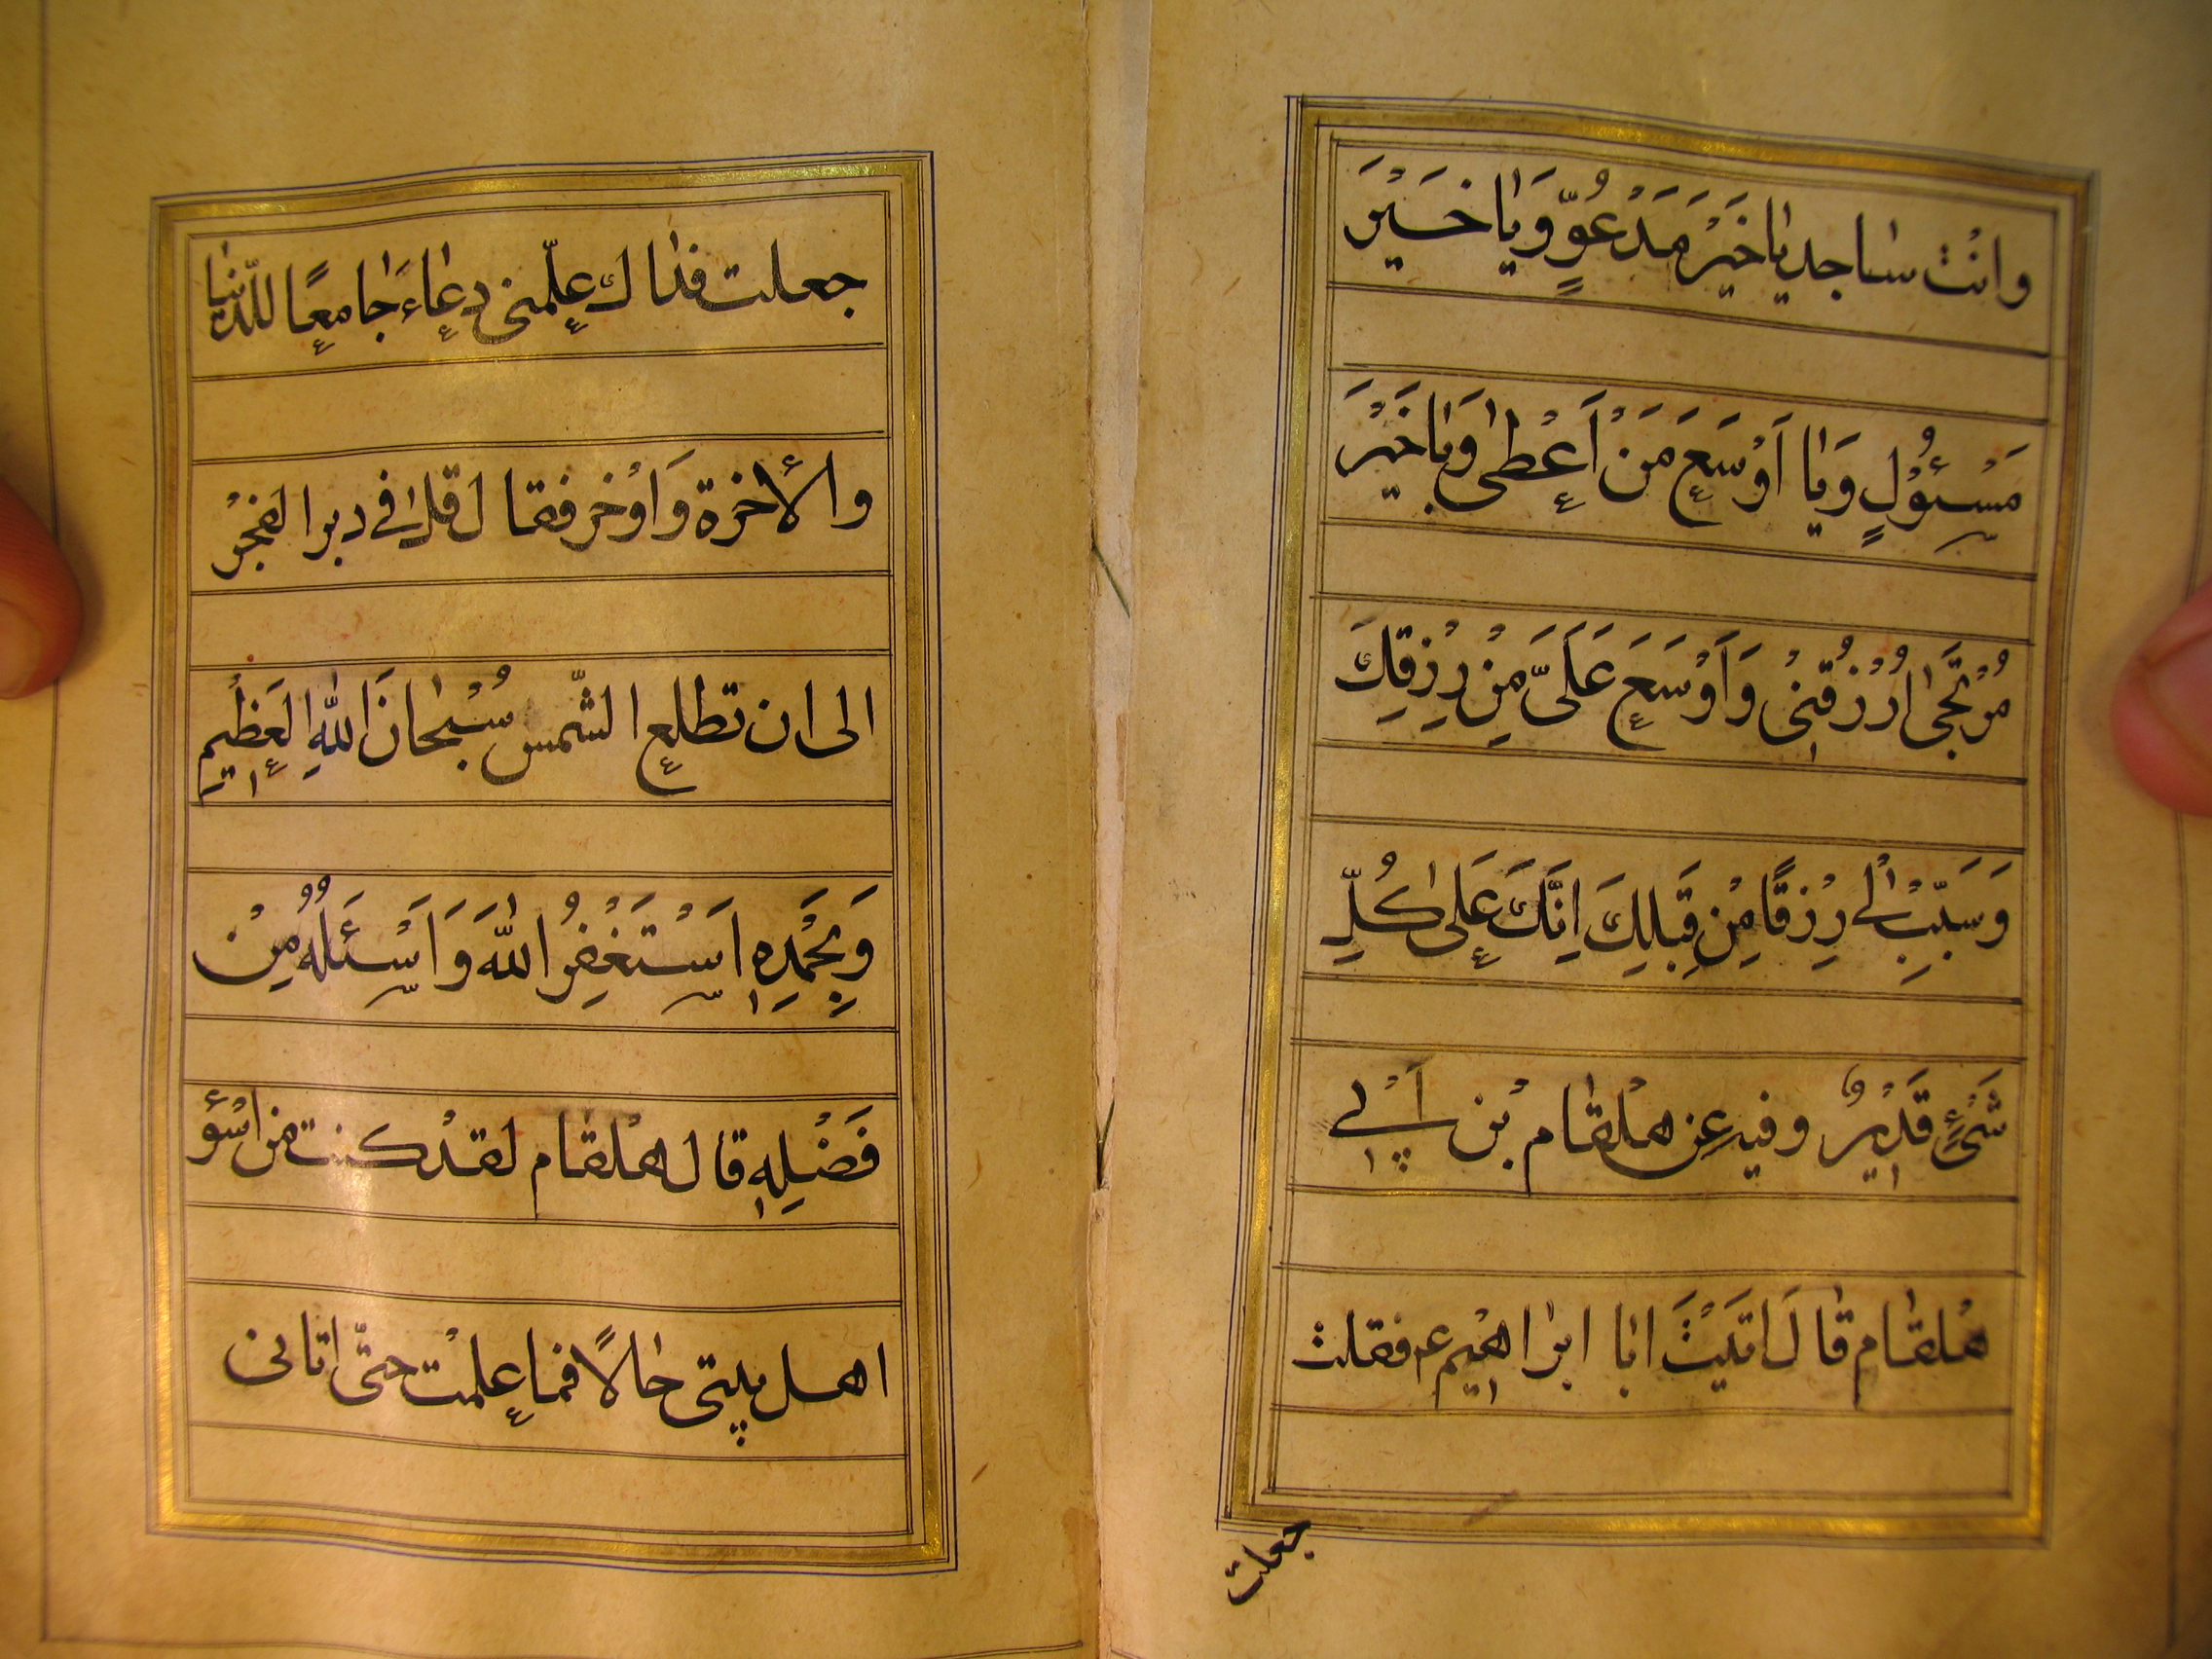 وانت ساجد يا خَيْرَ مَدْعُوٍّ وَيا خَيْرَ
مَسْئُوْلٍ وَيا اَوْسَعَ مَنْ اَعْطى وَيا خَيْرَ
مُرْتَجَى اُرْزُقْنِىْ وَاَوْسَعَ عَلَىَّ مِنْ رِزْقِكَ
وَسَبِّبْ لْي رِزْقًا مِنْ قِبَلِكَ اِنَّكَ عَلى كُلِّ
شَىْءٍ قَدْيرٌ وفيه عن هلْقام بْن اَبْي
هلْقام قال اَتَيْتَ ابا ابراهْيم ع فقلت
جعلت
جعلت فداك علّمنى دعاءَ جامعًا للدّنيا
والأخرة وَاَوْخر فقال قل في دبر الفجْر
الى ان تطلع الشّمس سُبْحانَ اللّٰهِ الْعَظْيمِ
وَبِحَمْدِهِ اَسْتَغْفِرُ اللّٰهَ وَاَسْئَلُهُ مِنْ
فَضْلِهِ قال هلْقام لقدْ كنت من اسْؤ
اهل بيتى حالًا فما علمْت حتّى اتانى